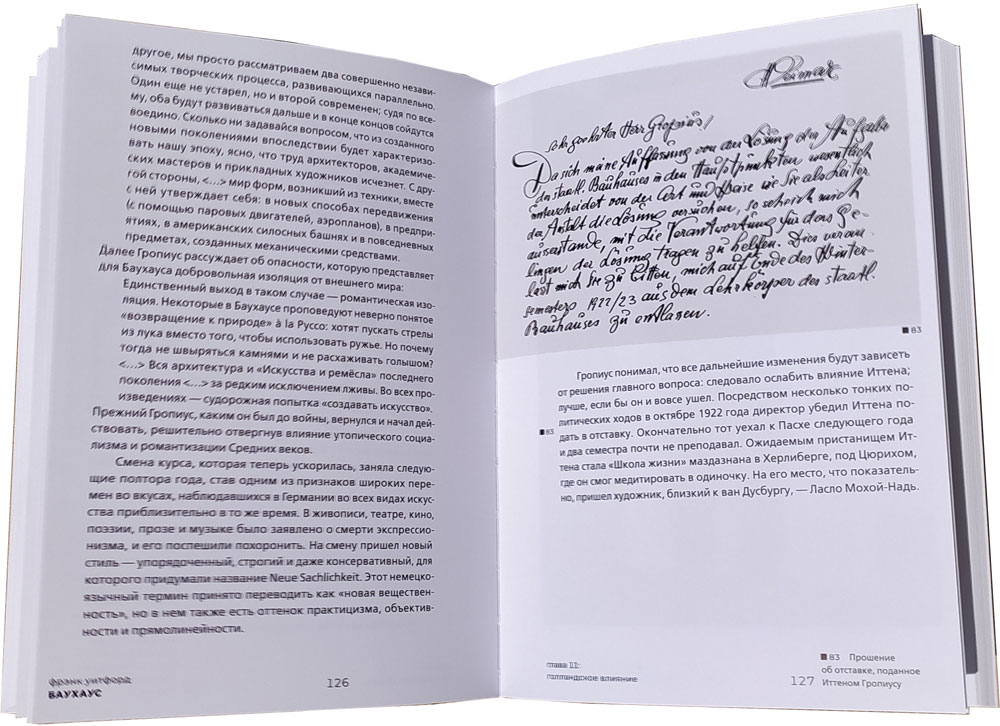 другое, мы просто рассматриваем два совершенно незави-
симых творческих процесса, развивающихся параллельно.
Один еще не устарел, но и второй современен; судя по все-
му, оба будут развиваться дальше и в конце концов сойдутся
воедино. Сколько ни задавайся вопросом, что из созданного
новыми поколениями впоследствии будет характеризо-
вать нашу эпоху, ясно, что труд архитекторов, академиче-
ских мастеров и прикладных художников исчезнет. С дру-
гой стороны, <...> мир форм, возникший из техники, вместе
с ней утверждает себя: в новых способах передвижения
(с помощью паровых двигателей, аэропланов), в предпри-
ятиях, в американских силосных башнях и в повседневных
предметах, созданных механическими средствами.
Далее Гропиус рассуждает об опасности, которую представляет
для Баухауса добровольная изоляция от внешнего мира:
Единственный выход в таком случае — романтическая изо-
ляция. Некоторые в Баухаусе проповедуют неверно понятое
«возвращение к природе» à la Руссо: хотят пускать стрелы
из лука вместо того, чтобы использовать ружье. Но почему
тогда не швыряться камнями и не расхаживать голышом?
<...> Вся архитектура и «Искусства и ремёсла» последнего
поколения <...> за редким исключением лживы. Во всех про-
изведениях — судорожная попытка «создавать искусство».
Прежний Гропиус, каким он был до войны, вернулся и начал дей-
ствовать, решительно отвергнув влияние утопического социа-
лизма и романтизации Средних веков.
Смена курса, которая теперь ускорилась, заняла следую-
щие полтора года, став одним из признаков широких пере-
мен во вкусах, наблюдавшихся в Германии во всех видах искус-
ства приблизительно в то же время. В живописи, театре, кино,
поэзии, прозе и музыке было заявлено о смерти экспрессио-
низма, и его поспешили похоронить. На смену пришел новый
стиль — упорядоченный, строгий и даже консервативный, для
которого придумали название Neue Sachlichkeit. Этот немецко-
язычный термин принято переводить как «новая веществен-
ность», но в нем также есть оттенок практицизма, объектив-
ности и прямолинейности.
франк уитфорд
БАУХАУС
126
Weimar
Sehr geehrter Herr Gropius!
Da sich meine Auffassung von der Lösung der Aufgabe
des staatl. Bauhauses in den Hauptpunkten wesentlich
unterscheidet von der Art und Weise wie Sie als Leiter
der Anstalt die Lösung versuchen, so scheide ich mich
ausserstande, mit die Verantwortung für das Ge-
lingen der Lösung tragen zu helfen. Dies veran-
lasst mich Sie zu bitten, mich auf Ende des Winter-
semesters 1922/23 aus dem Lehrkörper des staatl.
Bauhauses zu entlassen.
83
Гропиус понимал, что все дальнейшие изменения будут зависеть
от решения главного вопроса: следовало ослабить влияние Иттена;
лучше, если бы он и вовсе ушел. Посредством несколько тонких по-
литических ходов в октябре 1922 года директор убедил Иттена по-
83
дать в отставку. Окончательно тот уехал к Пасхе следующего года
и два семестра почти не преподавал. Ожидаемым пристанищем Ит-
тена стала «Школа жизни» маздазнана в Херлиберге, под Цюрихом,
где он смог медитировать в одиночку. На его место, что показатель-
но, пришел художник, близкий к ван Дусбургу, — Ласло Мохой-Надь.
глава 11:
голландское влияние
127
83 Прошение
об отставке, поданное
Иттеном Гропиусу